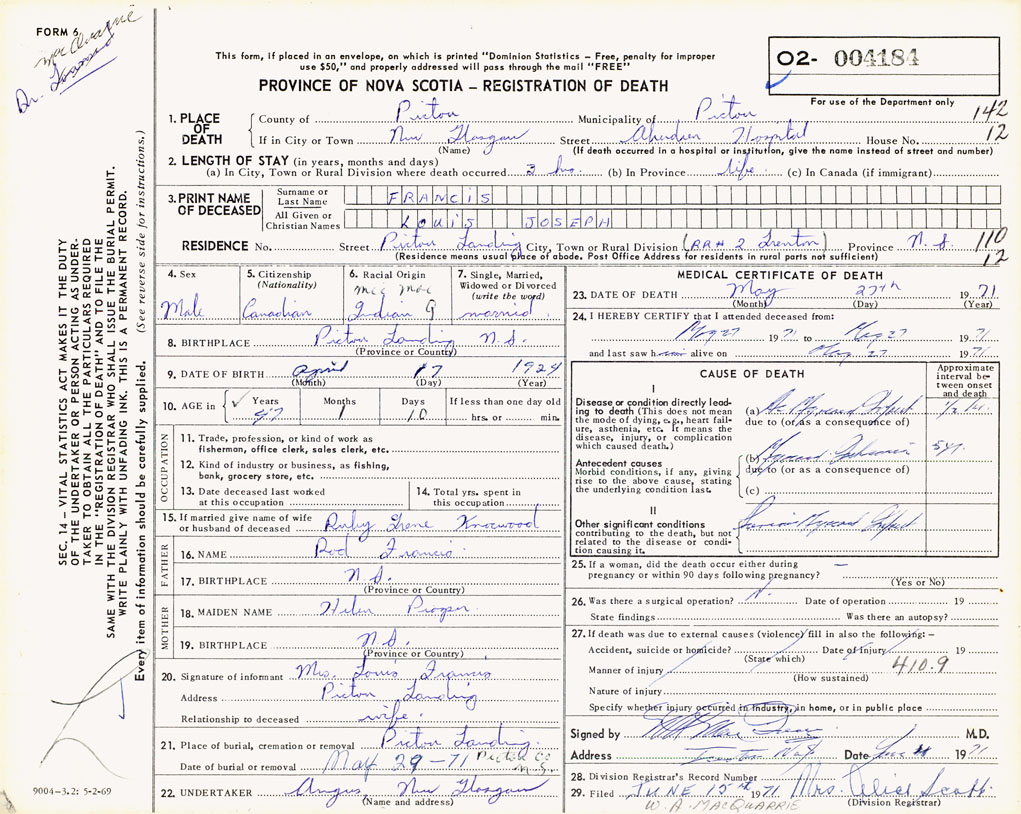 FORM 6
MacQuarrie
Dr.
This form, if placed in an envelope, on which is printed "Dominion Statistics – Free, penalty for improper
use $50," and properly addressed will pass through the mail "FREE"
PROVINCE OF NOVA SCOTIA – REGISTRATION OF DEATH
02- 004184
For use of the Department only
142
12
1. PLACE OF DEATH
County of Pictou Municipality of Pictou
If in City or Town New Glasgow Street Aberdeen Hospital House No.
(Name) (If death occurred in a hospital or institution, give the name instead of street and number)
2. LENGTH OF STAY (in years, months and days)
(a) In City, Town or Rural Division where death occurred 3 hrs. (b) In Province life (c) In Canada (if immigrant)
3. PRINT NAME OF DECEASED
Surname or Last Name FRANCIS
All Given or Christian Names LOUIS JOSEPH
RESIDENCE No. Street Pictou Landing City, Town or Rural Division (RR# 2 Trenton) Province N.S.
(Residence means usual place of abode. Post Office Address for residents in rural parts not sufficient)
110
12
4. Sex
Male
5. Citizenship (Nationality)
Canadian
6. Racial Origin
Mic Mac
Indian 9
7. Single, Married, Widowed or Divorced (write the word)
married
8. BIRTHPLACE Pictou Landing N.S.
(Province or Country)
9. DATE OF BIRTH April 17 1924
(Month) (Day) (Year)
10. AGE in Years Months Days If less than one day old
47 1 10 hrs. or min.
OCCUPATION
11. Trade, profession, or kind of work as
fisherman, office clerk, sales clerk, etc.
12. Kind of industry or business, as fishing,
bank, grocery store, etc.
13. Date deceased last worked
at this occupation
14. Total yrs. spent in
this occupation
15. If married give name of wife
or husband of deceased Ruby Irene Knockwood
FATHER
16. NAME Rod Francis
17. BIRTHPLACE N.S.
(Province or Country)
MOTHER
18. MAIDEN NAME Helen Prosper
19. BIRTHPLACE N.S.
(Province or Country)
20. Signature of informant Mrs. Louis Francis
Address Pictou Landing
Relationship to deceased wife
21. Place of burial, cremation or removal Pictou Landing
Date of burial or removal May 29-71 Pictou Co N.S.
22. UNDERTAKER Angus, New Glasgow
(Name and address)
MEDICAL CERTIFICATE OF DEATH
23. DATE OF DEATH May 27th 1971
(Month) (Day)
24. I HEREBY CERTIFY that I attended deceased from:
May 27 1971 to May 27 1971
and last saw him alive on May 27 1971
CAUSE OF DEATH
Approximate interval between onset and death
I
Disease or condition directly leading
to death (This does not mean
the mode of dying, e.g., heart failure,
asthenia, etc. It means the
disease, injury, or complication
which caused death.)
(a) Ac Myocard Infarct ½ hr.
due to (or as a consequence of)
Antecedent causes
Morbid conditions, if any, giving
rise to the above cause, stating
the underlying condition last.
(b) Myocard Ischemia 5 yr.
due to (or as a consequence of)
(c)
II
Other significant conditions
contributing to the death, but not
related to the disease or condition
causing it.
Previous Myocard Infarct
25. If a woman, did the death occur either during
pregnancy or within 90 days following pregnancy? –
(Yes or No)
26. Was there a surgical operation? N. Date of operation 19
State findings Was there an autopsy?
27. If death was due to external causes (violence) fill in also the following: –
Accident, suicide or homicide? Date of Injury 19
(State which)
Manner of injury 410.9
(How sustained)
Nature of injury
Specify whether injury occurred in Industry, in home, or in public place
Signed by M.D.
Address Date June 1971
28. Division Registrar's Record Number
29. Filed JUNE 15th 1971 Mrs. Alice Scott
W. A. MACQUARRIE (Division Registrar)
SEC. 14 – VITAL STATISTICS ACT MAKES IT THE DUTY
OF THE UNDERTAKER OR PERSON ACTING AS UNDERTAKER
TO OBTAIN ALL THE PARTICULARS REQUIRED
IN THE "REGISTRATION OF DEATH" AND TO FILE THE
SAME WITH THE DIVISION REGISTRAR WHO SHALL ISSUE THE BURIAL PERMIT.
WRITE PLAINLY WITH UNFADING INK. THIS IS A PERMANENT RECORD.
Every item of information should be carefully supplied. (See reverse side for instructions.)
9004-3.2: 5-2-69